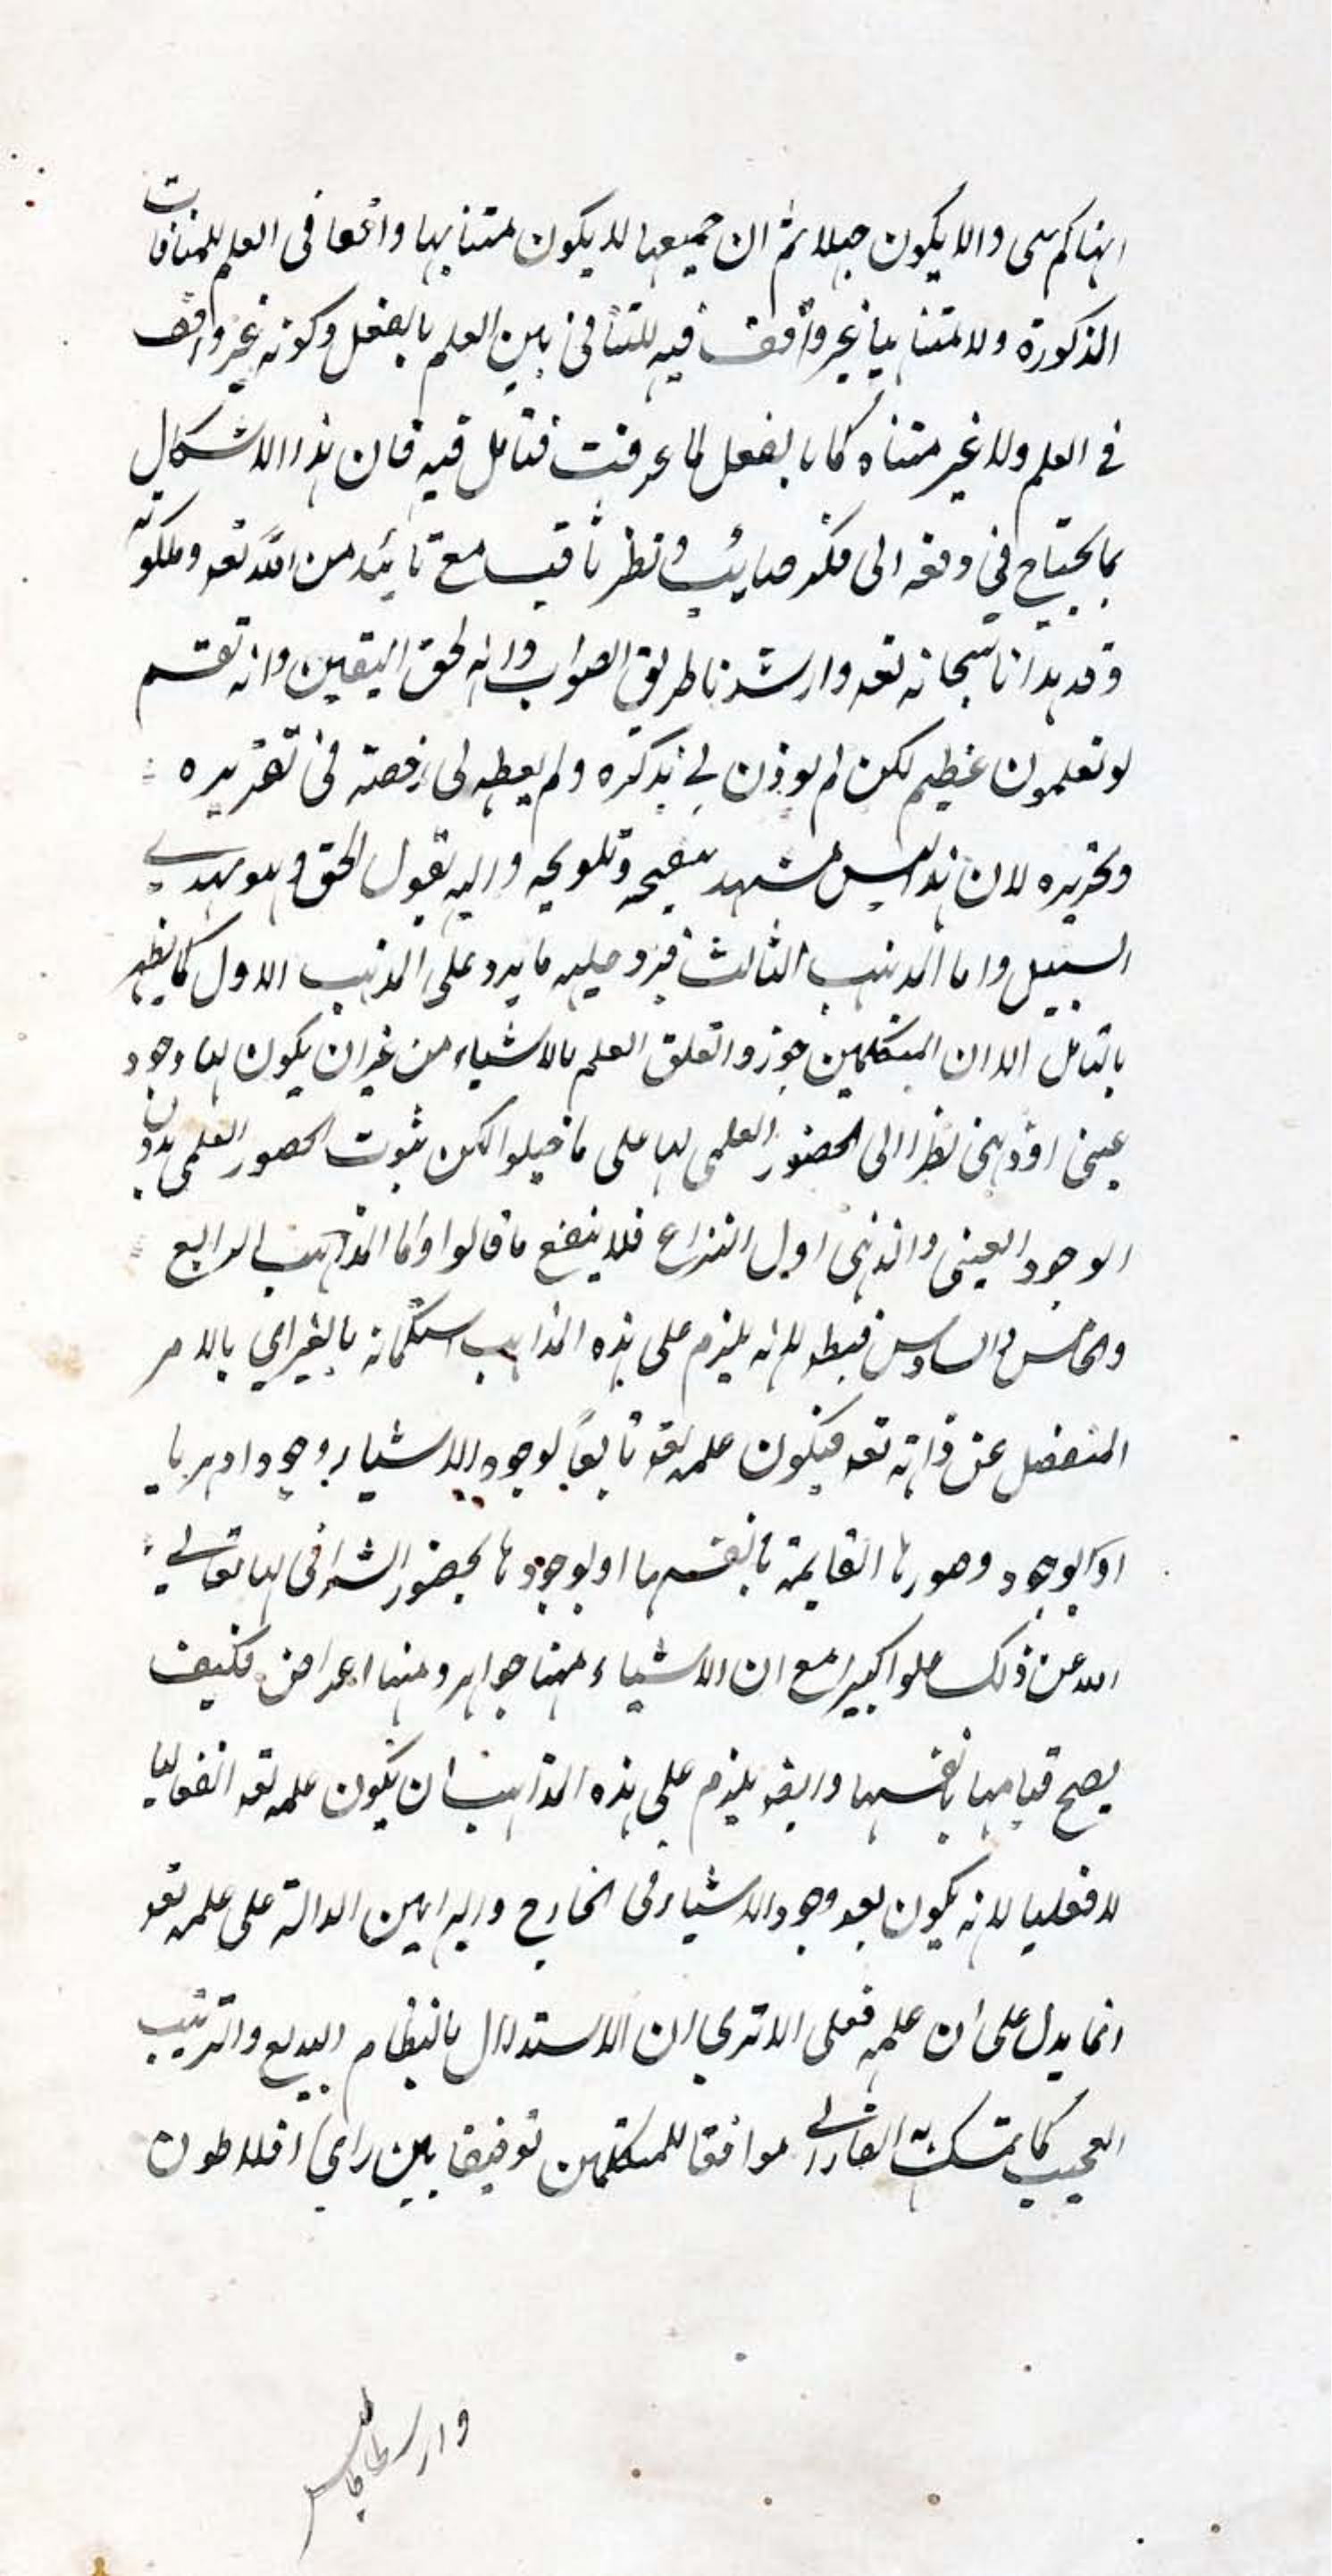 انها كم هى والا يكون جهلا ثم ان جميعها لا يكون متناهيا واقعا فى العلم للمنافات
المذكورة ولا متناهيا غير واقف فيه للتنافى بين العلم بالفعل وكونه غير واقف
فى العلم ولا غير متناه كما بالفعل لما عرفت فتامل فيه فان هذا الاشكال
مما يحتاج فى دفعه الى فكر صائب ونظر ثاقب مع تائيد من الله تعه وملكوته
وقد هدانا سبحانه تعه وارشدنا طريق الصواب وانه لحق اليقين وانه لقسم
لو تعلمون عظيم لكن لم يوذن لى بذكره ولم يعطه لى رخصة فى تقريره
وتحريره لان هذا ليس مشهد تنقيحه وتلويحه واليه يقول الحق وهو يهدى
السبيل واما المذهب الثالث فيرد عليه ما يرد على المذهب الاول كما يظهر
بالتامل الا ان المتكلمين جوزوا تعلق العلم بالاشياء من غير ان يكون لها وجود
عينى او ذهنى نظرا الى الحضور العلمى لها على ما خيلوا لكن ثبوت الحضور العلمى بدون
الوجود العينى والذهنى اول النزاع فلا ينفع ما قالوا واما المذاهب الرابع
والخامس والسادس فبطلانه يلزم على هذه المذاهب استكماله بالغير اي بالامر
المنفصل عن ذاته تعه فيكون علمه تعه تابعا لوجود الاشياء وجودا دهريا
او لوجود صورها القايمة بانفسها او لوجودها بحضور اشراقى لها تعالى
الله عن ذلك علوا كبيرا مع ان الاشياء منها جواهر ومنها اعراض فكيف
يصح قيامها بانفسها وايضه يلزم على هذه المذاهب ان يكون علمه تعه انفعاليا
لا فعليا لانه يكون بعد وجود الاشياء فى الخارج والبراهين الدالة على علمه تعه
انما يدل على ان علمه فعلى الا ترى ان الاستدلال بالنظام البديع والترتيب
العجيب كما تمسك به الفارابى موافقا للمتكلمين توفيقا بين رايى افلاطون
وارسطاطاليس